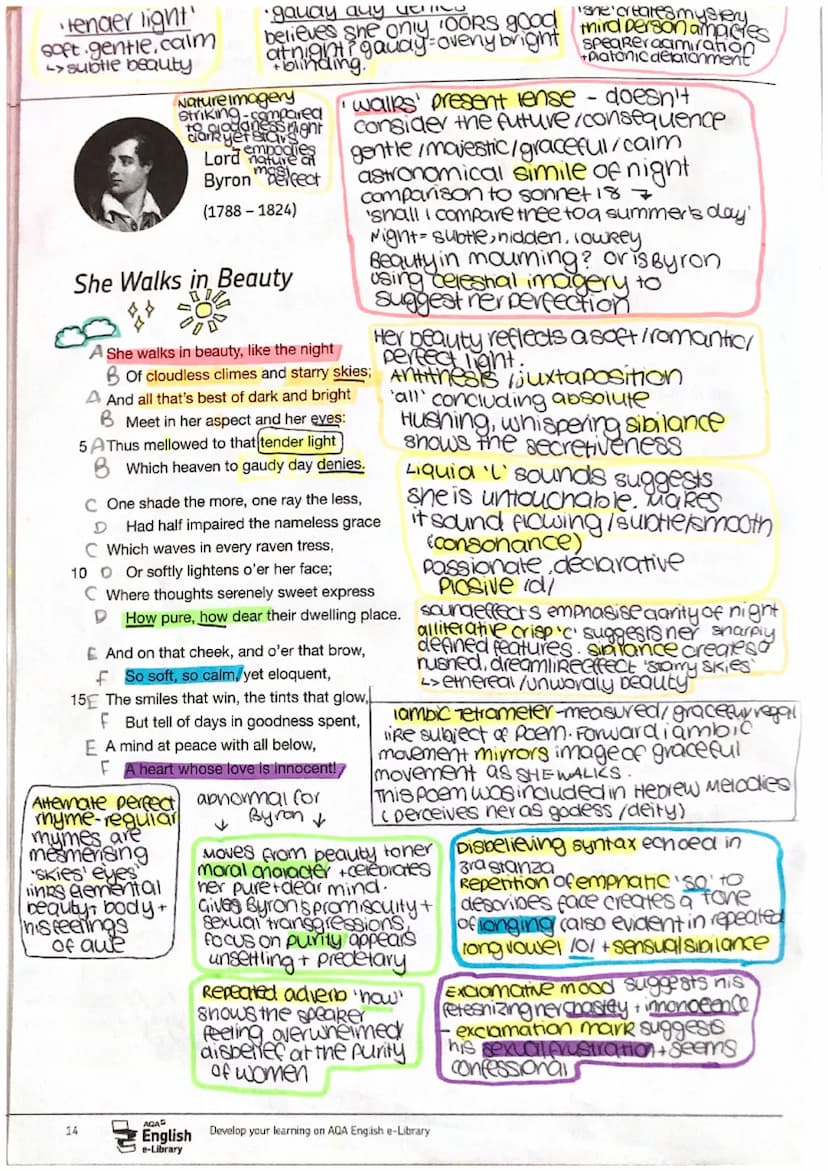 'tender light'
soft, gentle, calm
↳ subtle beauty
'gaudy day denies'
believes she only looks good
at night? gaudy = overly bright
+ blinding.
'she' creates mystery
third person
speaker admiration
+ platonic detatchment
Nature imagery
striking - compared
to goddess night
dark yet stars
↳ embodies
nature at
most
perfect
Lord
Byron
(1788 – 1824)
'walks' present tense - doesn't
consider the future/consequence
gentle/majestic/graceful/calm
astronomical simile of night
comparison to sonnet 18 →
'shall I compare thee to a summer's day'
Night = subtle, hidden, lowkey
Beauty in mourning? or is Byron
using celestial imagery to
suggest her perfection
She Walks in Beauty
A She walks in beauty, like the night
B Of cloudless climes and starry skies;
A And all that's best of dark and bright
B Meet in her aspect and her eyes:
5 A Thus mellowed to that tender light
B Which heaven to gaudy day denies.
C One shade the more, one ray the less,
D Had half impaired the nameless grace
C Which waves in every raven tress,
10 D Or softly lightens o'er her face;
C Where thoughts serenely sweet express
D How pure, how dear their dwelling place.
E And on that cheek, and o'er that brow,
F So soft, so calm, yet eloquent,
15 E The smiles that win, the tints that glow,
F But tell of days in goodness spent,
E A mind at peace with all below,
F A heart whose love is innocent!
Her beauty reflects a soft/romantic/
perfect light.
Antithesis/juxtaposition
'all' concluding absolute
Hushing, whispering sibilance
shows the secretiveness
Liquid 'L' sounds suggests
she is untouchable. Makes
it sound flowing/subtle/smooth
(consonance)
passionate, declarative
Plosive /d/
sound effects emphasise clarity of night
alliterative crisp 'c' suggests her sharply
defined features. sibilance creates a
hushed, dreamlike effect 'starry skies'
↳ ethereal/unwordly beauty
Iambic tetrameter - measured/gracefully regal
like subject of poem. Forward iambic
movement mirrors image of graceful
movement as SHE WALKS.
This poem was included in Hebrew Melodies
(perceives her as godess/deity)
Alternate perfect
rhyme - regular
rhymes are
mesmerising
'skies' 'eyes'
links elemental
beauty + body +
his feelings
of awe
abnormal for
↓ Byron ↓
Moves from beauty to her
moral character + celebrates
her pure + dear mind.
Given Byron's promiscuity +
sexual transgressions,
focus on purity appears
unsettling + predetary
Repeated adverb 'how'
shows the speaker
feeling overwhelmed/
disbelief at the purity
of women
Disbelieving syntax echoed in
3rd stanza
Repention of emphatic 'so' to
describes face creates a tone
of longing (also evident in repeated
long vowel /o/ + sensual sibilance
Exclamative mood suggests his
fetishizing her chastity + innocence
- exclamation mark suggests
his sexual frustration + seems
confessional
14
AQA
English
e-Library
Develop your learning on AQA English e-Library